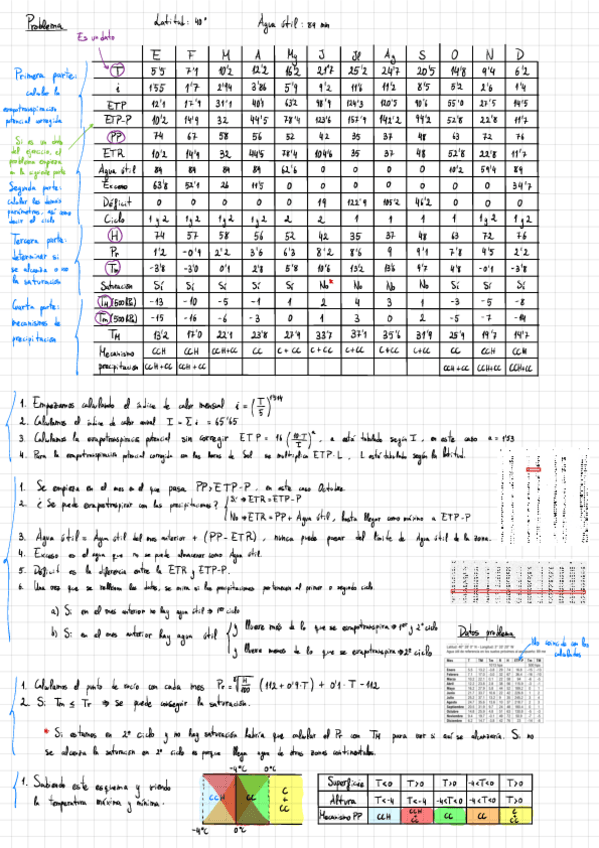 Problema
Latitud: 40°
Agua útil: 89 mm
Es un dato
E F M A My J Jl Ag S O N D
T 5'5 7'1 10'2 12'2 16'2 21'7 25'2 24'7 20'5 14'8 9'4 6'2
i 1'55 1'7 2'94 3'86 5'9 9'2 11'6 11'2 8'5 5'2 2'6 1'4
ETP 12'1 17'9 31'1 40'1 63'2 98'9 124'3 120'5 90'6 55'0 27'5 14'5
ETP-P 10'2 14'9 32 44'5 78'4 123'6 157'9 142'2 94'2 52'8 22'8 11'7
PP 74 67 58 56 52 42 35 37 48 63 72 76
ETR 10'2 14'9 32 44'5 78'4 104'6 35 37 48 52'8 22'8 11'7
Agua útil 89 89 89 89 62'6 0 0 0 0 10'2 59'4 89
Exceso 63'8 52'1 26 11'5 0 0 0 0 0 0 0 34'7
Déficit 0 0 0 0 0 19 122'9 105'2 46'2 0 0 0
Ciclo 1 y 2 1 y 2 1 y 2 1 y 2 2 2 1 1 1 1 1 y 2 1 y 2
H 74 57 58 56 52 42 35 37 48 63 72 76
Pr 1'2 -0'9 2'2 3'6 6'3 8'2 8'6 9 9'1 7'8 4'5 2'2
Tm -3'8 -3'0 0'1 2'8 5'8 10'6 13'2 13'6 9'7 4'8 -0'1 -3'8
Saturación Sí Sí Sí Sí Sí No* No No No Sí Sí Sí
TM (500 hPa) -13 -10 -5 -1 1 2 4 3 1 -3 -5 -8
Tm (500 hPa) -15 -16 -6 -3 0 1 3 0 2 -5 -7
TM 13'2 17'0 22'1 23'8 27'9 33'7 37'1 35'6 31'9 25'9 19'7 14'7
Mecanismo CCH CCH CCH+CC CC C + CC C + CC C+CC C + CC C + CC CC CCH CCH
precipitación CCH + CC CCH + CC CCH + CC CCH+CC CCH+CC
Primera parte:
calcular la
evapotranspiración
potencial corregida
Si es un dato
del ejercicio, el
problema empieza
en la siguiente parte
Segunda parte:
calcular los demás
parámetros, así como
decir el ciclo
Tercera parte:
determinar si
se alcanza o no
la saturación
Cuarta parte:
mecanismos de
precipitación
1. Empezamos calculando el índice de calor mensual i = (T/5)^1'514
2. Calculamos el índice de calor anual I = Σ i = 65'65
3. Calculamos la evapotranspiración potencial sin corregir ETP = 16 (10·T/I)^a, a está tabulado según I, en este caso a = 1'53
4. Para la evapotranspiración potencial corregida con las horas de Sol se multiplica ETP·L, L está tabulado según la latitud.
1. Se empieza en el mes en el que pasa PP>ETP-P, en este caso Octubre.
2. ¿Se puede evapotranspirar con las precipitaciones? Sí ⇒ ETR=ETP-P
No ⇒ ETR=PP+Agua útil, hasta llegar como máximo a ETP-P
3. Agua útil = Agua útil del mes anterior + (PP-ETR), nunca puede pasar del límite de Agua útil de la zona.
4. Exceso es el agua que no se puede almacenar como agua útil.
5. Déficit es la diferencia entre la ETR y ETP-P.
6. Una vez que se rellenan los datos, se mira si las precipitaciones pertenecen al primer o segundo ciclo.
a) Si en el mes anterior no hay agua útil ⇒ 1er ciclo
b) Si en el mes anterior hay agua útil y llueve más de lo que se evapotranspira ⇒ 1er y 2º ciclo
y llueve menos de lo que se evapotranspira ⇒ 2º ciclo
Datos problema
No coincide con los
calculados
1. Calculamos el punto de rocío con cada mes Pr = ⁸√(H/100) (112 + 0'9·T) + 0'1·T - 112
2. Si Tm ≤ Pr ⇒ se puede conseguir la saturación.
* Si estamos en 2º ciclo y no hay saturación habría que calcular el Pr con TM para ver si así se alcanzaría. Si no
se alcanza la saturación en 2º ciclo es porque llega agua de otras zonas continentales.
1. Sabiendo este esquema y viendo
la temperatura máxima y mínima.
-4ºC 0ºC
CCH CC C + CC
-4ºC 0ºC
Superficie T<0 T>0 T>0 -4<T<0 T>0
Altura T<-4 T<-4 -4<T<0 -4<T<0 T>0
Mecanismo PP CCH CCH CC CC CC C CC